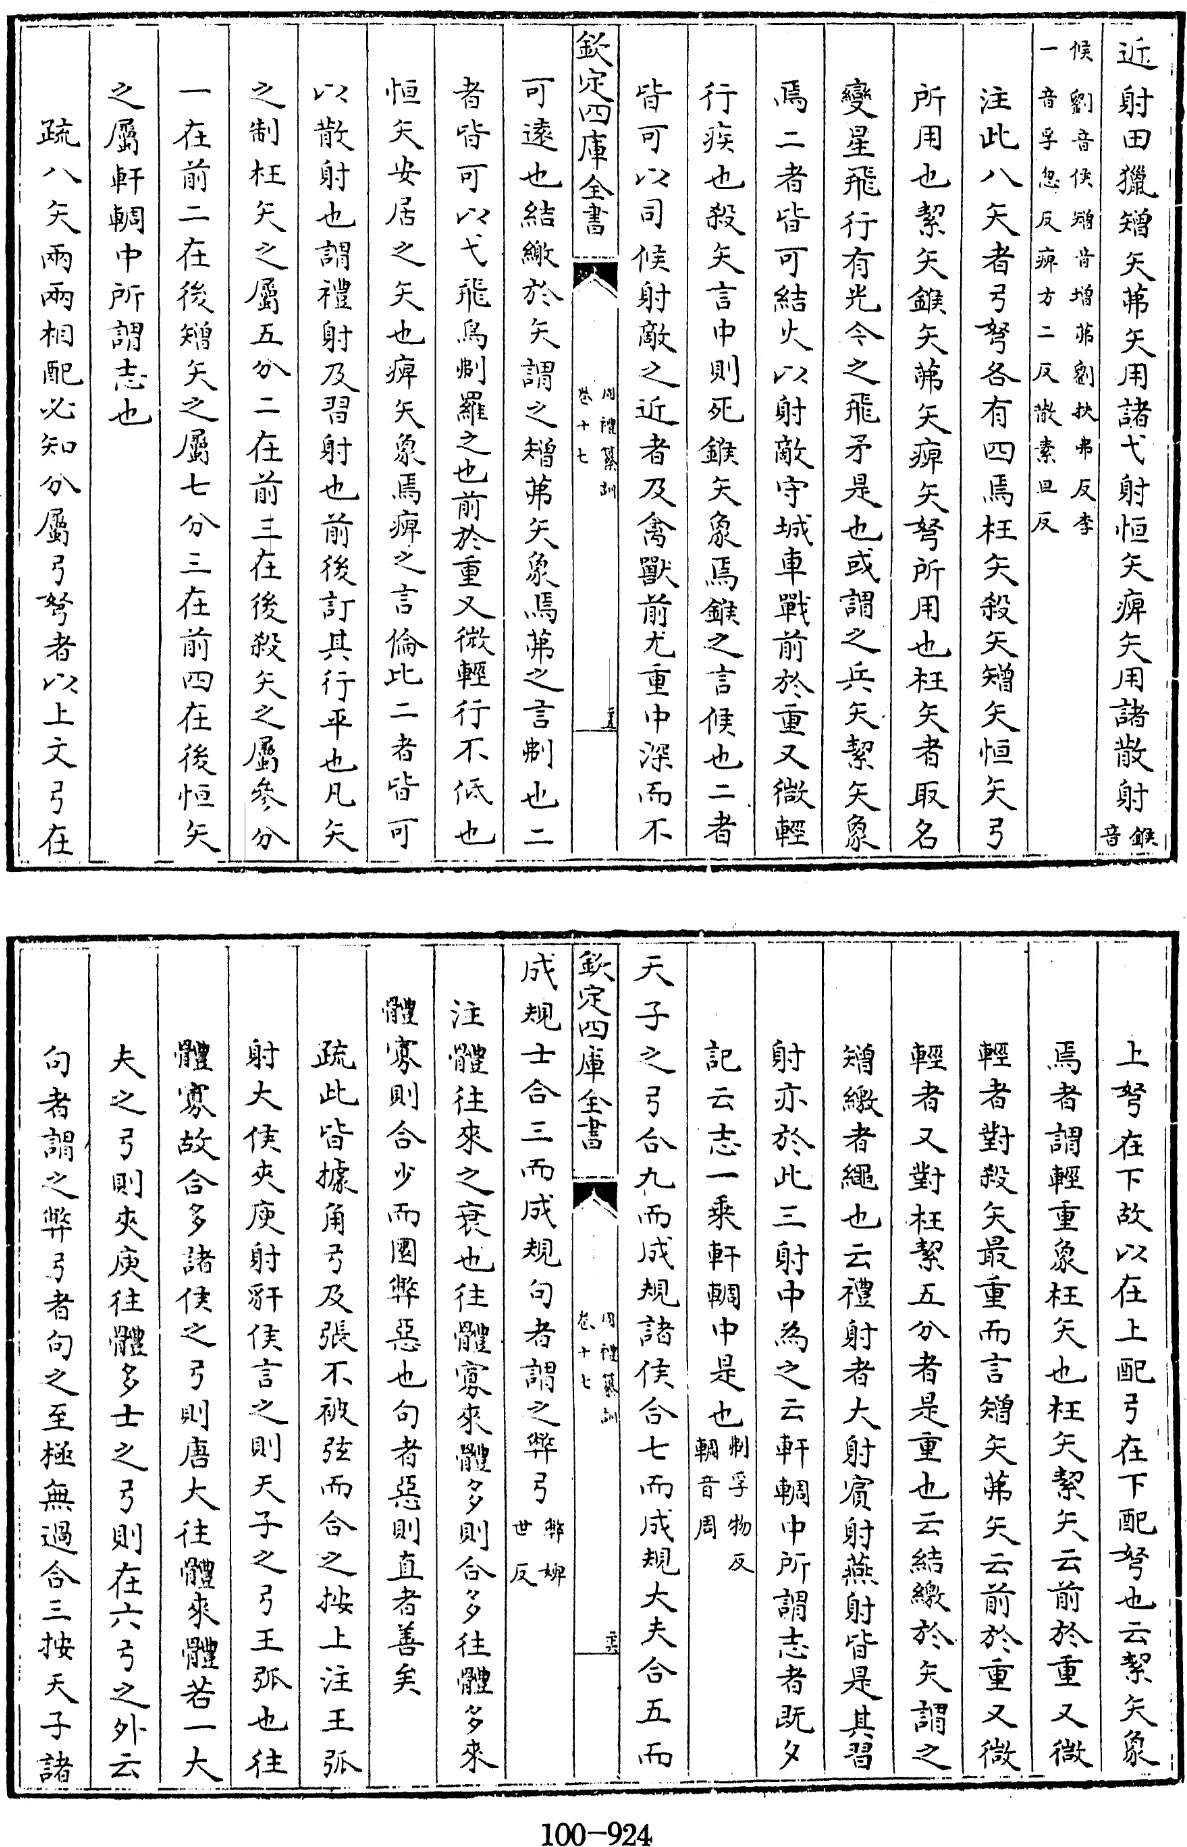 近射田獵矰矢茀矢用諸弋射恒矢痺矢用諸散射鍭音
候劉音侯矰音增茀劉扶弗反李一音孚忽反痺方二反散素旦反
注此八矢者弓弩各有四焉枉矢殺矢矰矢恒矢弓
所用也絜矢鍭矢茀矢痺矢弩所用也枉矢者取名
變星飛行有光今之飛矛是也或謂之兵矢絜矢象
焉二者皆可結火以射敵守城車戰前於重又微輕
行疾也殺矢言中則死鍭矢象焉鍭之言候也二者
皆可以司候射敵之近者及禽獸前尤重中深而不
欽定四庫全書
周禮纂訓
卷十七
可遠也結繳於矢謂之矰茀矢象焉茀之言刜也二
者皆可以弋飛鳥刜羅之也前於重又微輕行不低也
恒矢安居之矢也痺矢象焉痺之言倫比二者皆可
以散射也謂禮射及習射也前後訂其行平也凡矢
之制枉矢之屬五分二在前三在後殺矢之屬參分
一在前二在後矰矢之屬七分三在前四在後恒矢
之屬軒輖中所謂志也
疏八矢兩兩相配必知分屬弓弩者以上文弓在
上弩在下故以在上配弓在下配弩也云絜矢象
焉者謂輕重象枉矢也枉矢絜矢云前於重又微
輕者對殺矢最重而言矰矢茀矢云前於重又微
輕者又對枉絜五分者是重也云結繳於矢謂之
矰繳者繩也云禮射者大射賓射燕射皆是其習
射亦於此三射中為之云軒輖中所謂志者既夕
記云志一乘軒輖中是也刜孚物反輖音周
天子之弓合九而成規諸侯合七而成規大夫合五而
欽定四庫全書
周禮纂訓
卷十七
成規士合三而成規句者謂之弊弓弊婢世反
注體往來之衰也往體寡來體多則合多往體多來
體寡則合少而圜弊惡也句者惡則直者善矣
疏此皆據角弓及張不被弦而合之按上注王弧
射大侯夾庾射豻侯言之則天子之弓王弧也往
體寡故合多諸侯之弓則唐大往體來體若一大
夫之弓則夾庾往體多士之弓則在六弓之外云
句者謂之弊弓者句之至極無過合三按天子諸
100-924